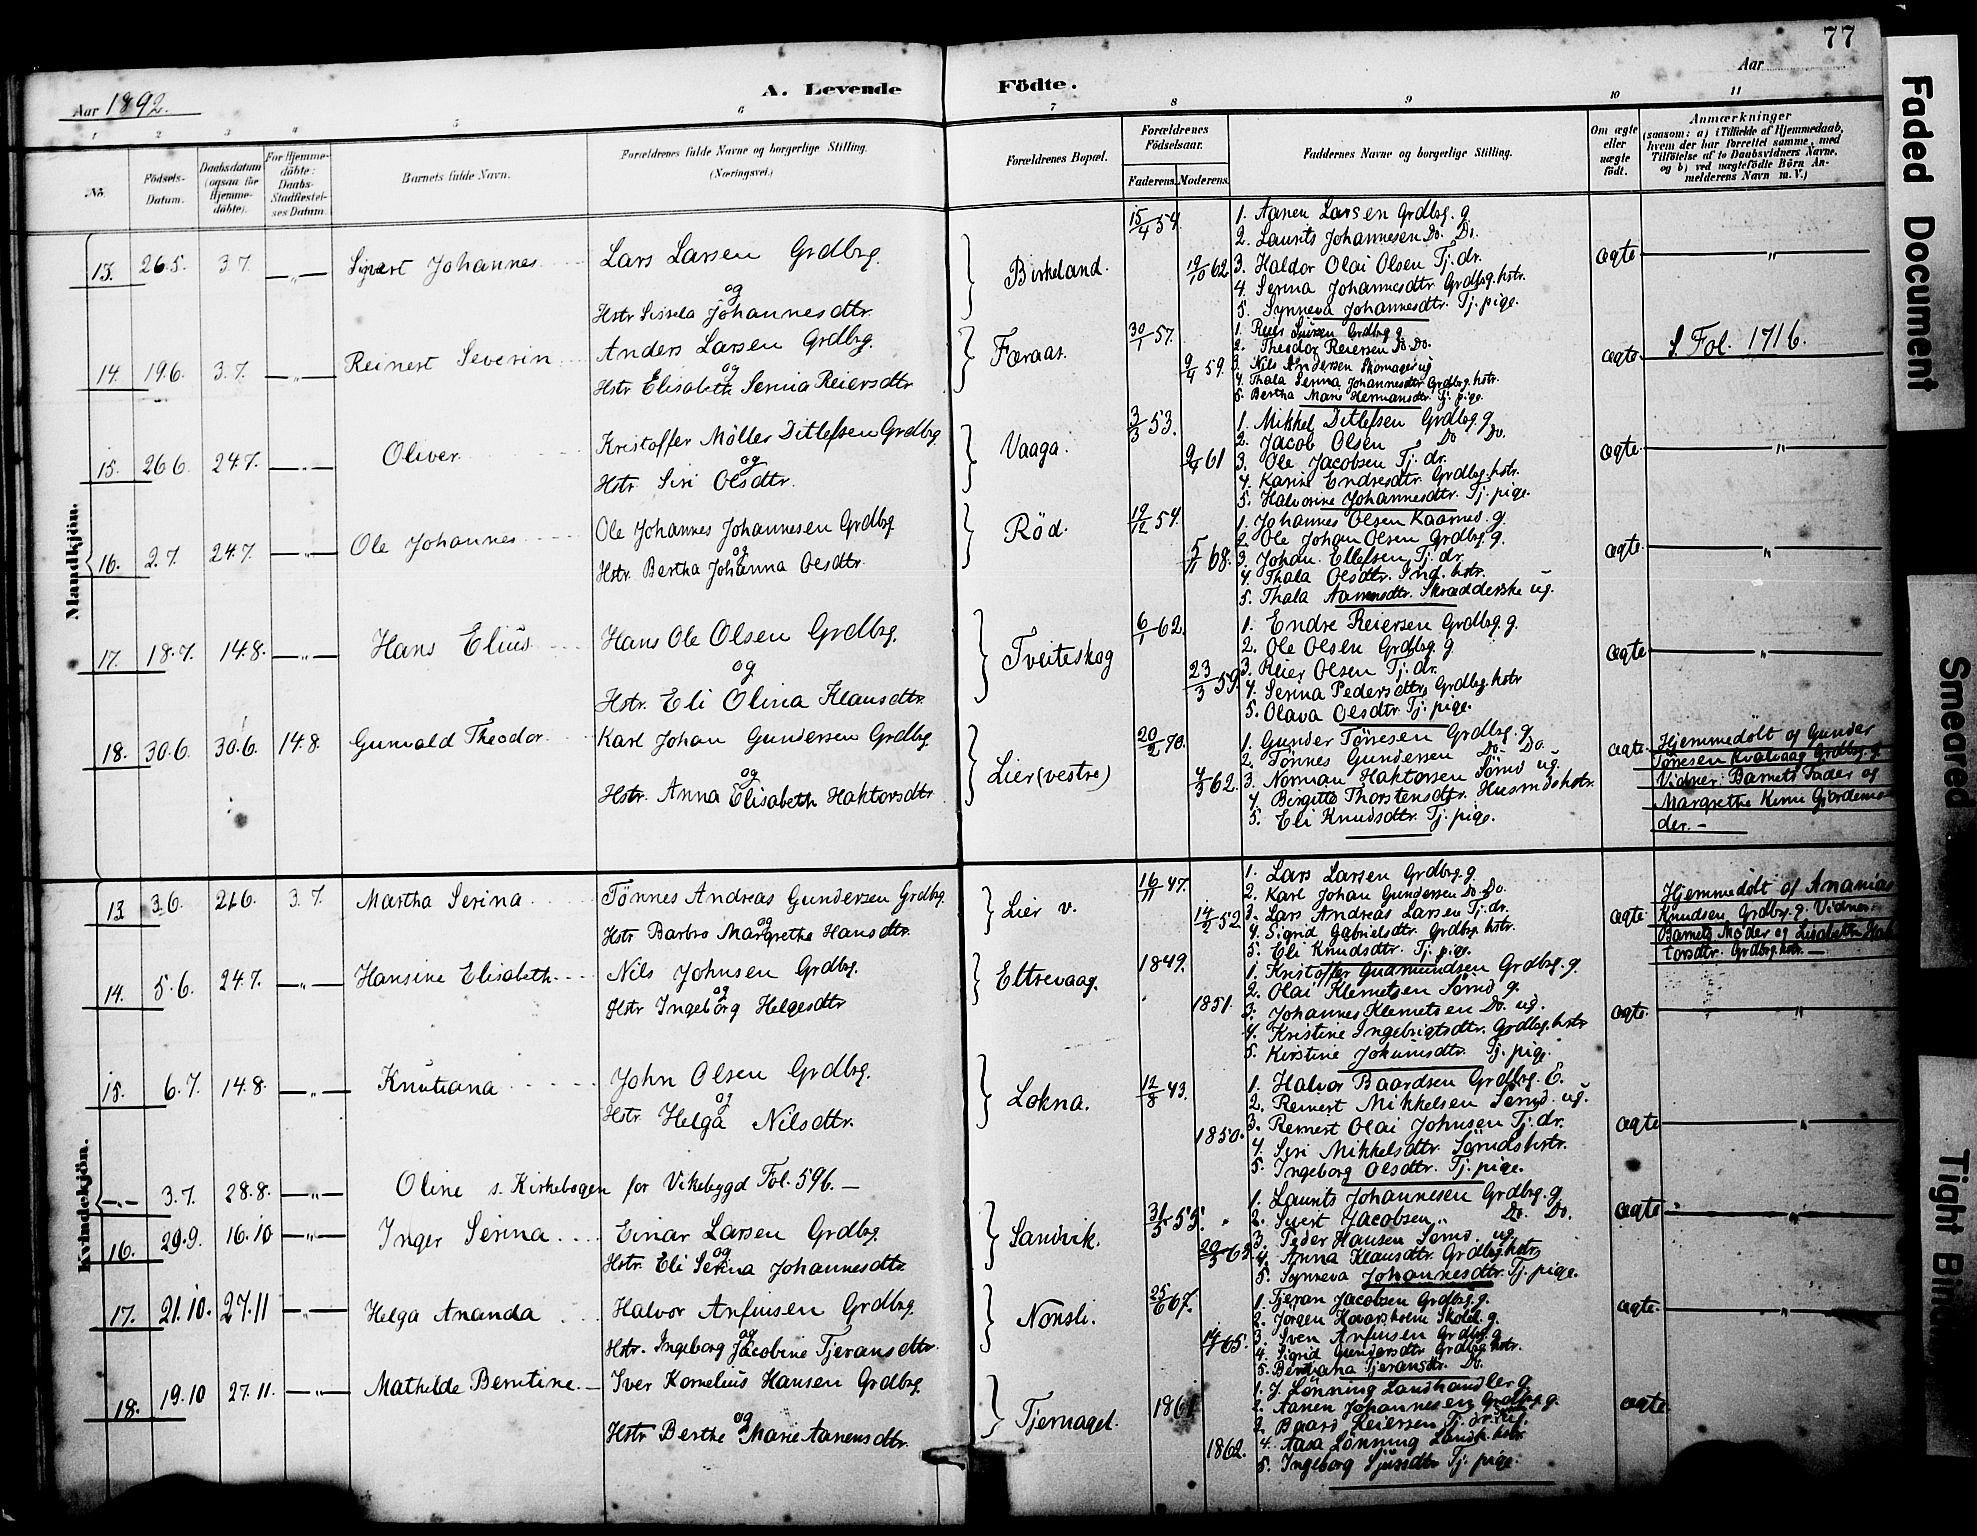 77
Aar 1892.
A. Levende Födte.
Aar
1 2 3 4 5 6 7 8 9 10 11
No.
Födsels-Datum.
Daabsdatum (ogsaa for Hjemme-döbte).
For Hjemme-döbte: Daabs-Stadfæstel-ses Datum.
Barnets fulde Navn.
Forældrenes fulde Navne og borgerlige Stilling.
(Næringsvei.)
Forældrenes Bopæl.
Forældrenes Födselsaar.
Faderens. Moderens.
Faddernes Navne og borgerlige Stilling.
Om ægte eller uægte födt.
Anmærkninger
(saasom: a) i Tilfælde af Hjemmedaab,
hvem der har forrettet samme, med
Tilföielse af to Daabsvidners Navne,
og b) ved uægtefödte Börn An-
melderens Navn m. V.)
Mandkjön.
13. 26.5. 3.7. —„— Sivert Johannes
Lars Larsen Grdbrg.
og
Hstr Sissela Johannesdtr.
Birkeland.
15/4 54. 19/10 62
1. Aanen Larsen Grdbrg. g.
2. Laurits Johannesen Do. Do.
3. Haldor Olai Olsen Tj. dr.
4. Serina Johannesdtr. Grdbrg. hstr.
5. Synneva Johannesdtr. Tj. pige.
ægte
—„—
14. 19.6. 3.7. —„— Reinert Severin
Anders Larsen Grdbrg.
og
Hstr Elisabeth Serina Reiersdtr
Færaas.
30/1 57. 9/4 59.
1. Reier Grdbrg g
2. Theodor Reiersen Do. Do.
3. Nils Andersen Skomager ug
4. Thala Serina Johannesdtr Grdbrg. hstr.
5. Bertha Marie Hermansdtr. Tj. pige.
ægte
S. Fol. 1716.
15. 26.6. 24.7. —„— Oliver
Kristoffer Möller Ditlefsen Grdbrg
og
Hstr Siri Olsdtr.
Vaaga.
3/3 53. 9/4 61
1. Mikkel Ditlefsen Grdbrg. g
2. Jacob Olsen Do Do.
3. Ole Jacobsen Tj. dr.
4. Karine Endresdtr. Grdbrg. hstr.
5. Halvorine Johannesdtr. Tj. pige.
ægte
„
16. 2.7. 24.7. —„— Ole Johannes
Ole Johannes Johannesen Grdbrg
og
Hstr. Bertha Johanna Olsdtr.
Röd.
19/12 54. 5/11 68.
1. Johannes Olsen Kaarmd. g.
2. Ole Johan Olsen Grdbrg. g.
3. Johan Ellefsen Tj. dr.
4. Thala Olsdtr. Ind. hstr.
5. Thala Aanensdtr. Skrædderske ug.
ægte
„
17. 18.7. 14.8. —„— Hans Elius
Hans Ole Olsen Grdbrg.
og
Hstr. Eli Olina Klausdtr.
Tveiteskog
6/1 62. 23/3 59.
1. Endre Reiersen Grdbrg. g.
2. Ole Olsen Grdbrg. g
3. Reier Olsen Tj. dr.
4. Serina Pedersdtr. Grdbrg. hstr
5. Olava Olsdtr. Tj. pige.
ægte
„
18. 30.6. 30.6. 14.8. Gunvald Theodor
Karl Johan Gundersen Grdbrg
og
Hstr. Anna Elisabeth Haktorsdtr.
Lier (vestre)
20/2 70. 4/3 62.
1. Gunder Tönesen Grdbrg. g
2. Tönnes Gundersen Do. Do.
3. Norman Haktorsen Sömd ug.
4. Birgitte Thorstensdtr. Husmdshstr.
5. Eli Knudsdtr. Tj. pige.
ægte
Hjemmedöbt af Gunder
Tönesen Kvalvaag Grdbrg. g
Vidner: Barnets Fader og
Margrethe Gjordemo
der.—
Kvindekjön.
13. 3.6. 21.6. 3.7. Martha Serina
Tönnes Andreas Gundersen Grdbrg.
og
Hstr Barbro Margrethe Hansdtr.
Lier v.
16/11 47. 14/2 52
1. Lars Larsen Grdbrg. g
2. Karl Johan Gundersen Do. Do.
3. Lars Andreas Larsen Tj. dr.
4. Sigrid Gabrielsdtr. Grdbrg. hstr.
5. Eli Knudsdtr. Tj. pige.
ægte
Hjemmedöbt af Ananias
Knudsen Grdbrg. g. Vidner
Barnets Moder og Lisabeth Hak
torsdtr. Grdbrg. hstr.—
14. 5.6. 24.7. —„— Hansine Elisabeth
Nils Johnsen Grdbrg.
og
Hstr Ingeborg Helgesdtr
Eltrevaag.
1849. 1851.
1. Kristoffer Gudmundsen Grdbrg. g.
2. Olai Klemetsen Sömd g.
3. Johannes Klemetsen Do. ug.
4. Kristine Ingebrigtsdtr. Grdbrg. hstr
5. Kirstine Johannisdtr. Tj. pige.
ægte
„
15. 6.7. 14.8. —„— Knutiana
John Olsen Grdbrg.
og
Hstr Helga Nilsdtr.
Lokna.
12/8 43. 1850.
1. Halvor Baardsen Grdbrg. E.
2. Reinert Mikkelsen Sömd. ug.
3. Reinert Olai Johnsen Tj. dr.
4. Siri Mikkelsdtr Sömdshstr.
5. Ingeborg Olsdtr. Tj. pige.
ægte
„
—„— 3.7. 28.8. —„— Oline s. Kirkebogen for Vikebygd Fol. 596.—
16. 29.9. 16.10 —„— Inger Serina
Einar Larsen Grdbrg.
og
Hstr. Eli Serina Johannesdtr.
Sandvik.
31/5 55. 20/3 62.
1. Laurits Johannesen Grdbrg. g.
2. Sivert Jacobsen Do. Do.
3. Peder Hansen Sömd. ug.
4. Anna Klausdtr. Grdbrg. hstr
5. Synneva Johannesdtr. Tj. pige.
ægte
„
17. 21.10. 27.11 —„— Helga Ananda
Halvor Anfinsen Grdbrg.
og
Hstr. Ingeborg Jacobine Tjeransdtr.
Nonsli.
25/6 67. 14/4 65.
1. Tjeran Jacobsen Grdbrg. g.
2. Jörgen Skolel. g.
3. Sven Anfinsen Grdbrg. g
4. Sigrid Gundersdtr Grdbrg. hstr.
5. Bentiana Tjeransdtr. Do.
ægte
„
18. 19.10 27.11. —„— Mathilde Berntine
Iver Kornelius Hansen Grdbrg
og
Hstr Berthe Marie Aanensdtr.
Tjernagel.
1861 1862.
1. J. Lönning Landhandler g
2. Aanen Johannesen Grdbrg. g.
3. Baard Reiersen Tj. dr. ug.
4. Aasa Lönning Landh. hstr.
5. Ingeborg Sjursdtr Tj. pige.
ægte
Faded Document
Smeared
Tight Bind